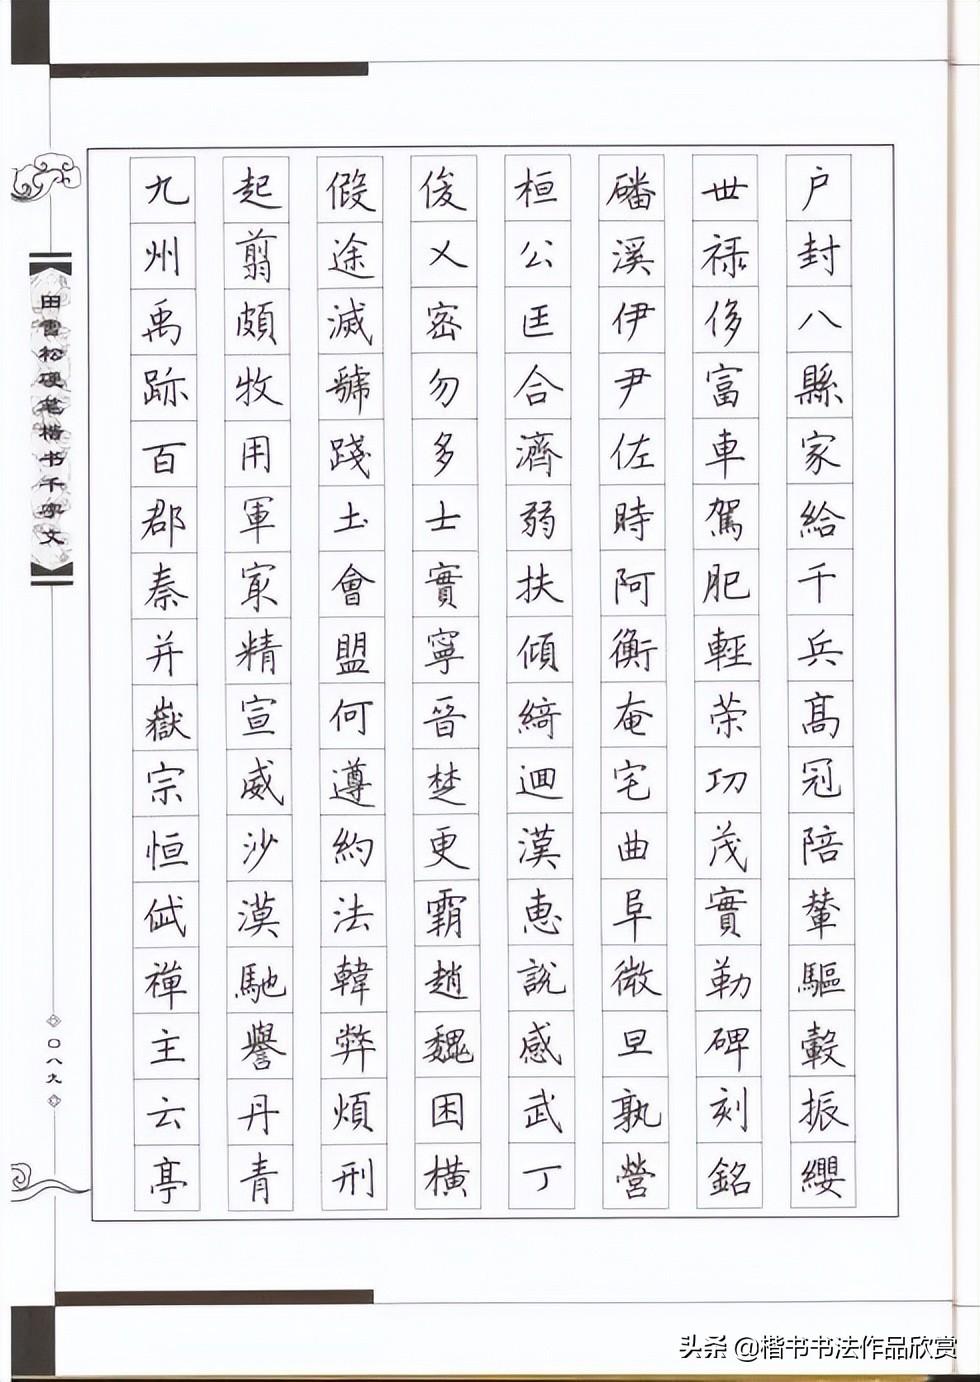 戶封八縣家給千兵髙冠陪輦驅轂振纓
世禄侈富車駕肥輕荣功茂實勒碑刻銘
磻溪伊尹佐時阿衡奄宅曲阜微旦孰營
桓公匡合濟弱扶傾綺迴漢惠說感武丁
俊乂密勿多士寔寧晉楚更霸趙魏困橫
假途滅虢踐土會盟何遵約法韓弊煩刑
起翦頗牧用軍冣精宣威沙漠馳譽丹青
九州禹跡百郡秦并嶽宗恒岱禪主云亭
田雪松硬笔楷书千字文
〇八九
头条 @楷书书法作品欣赏